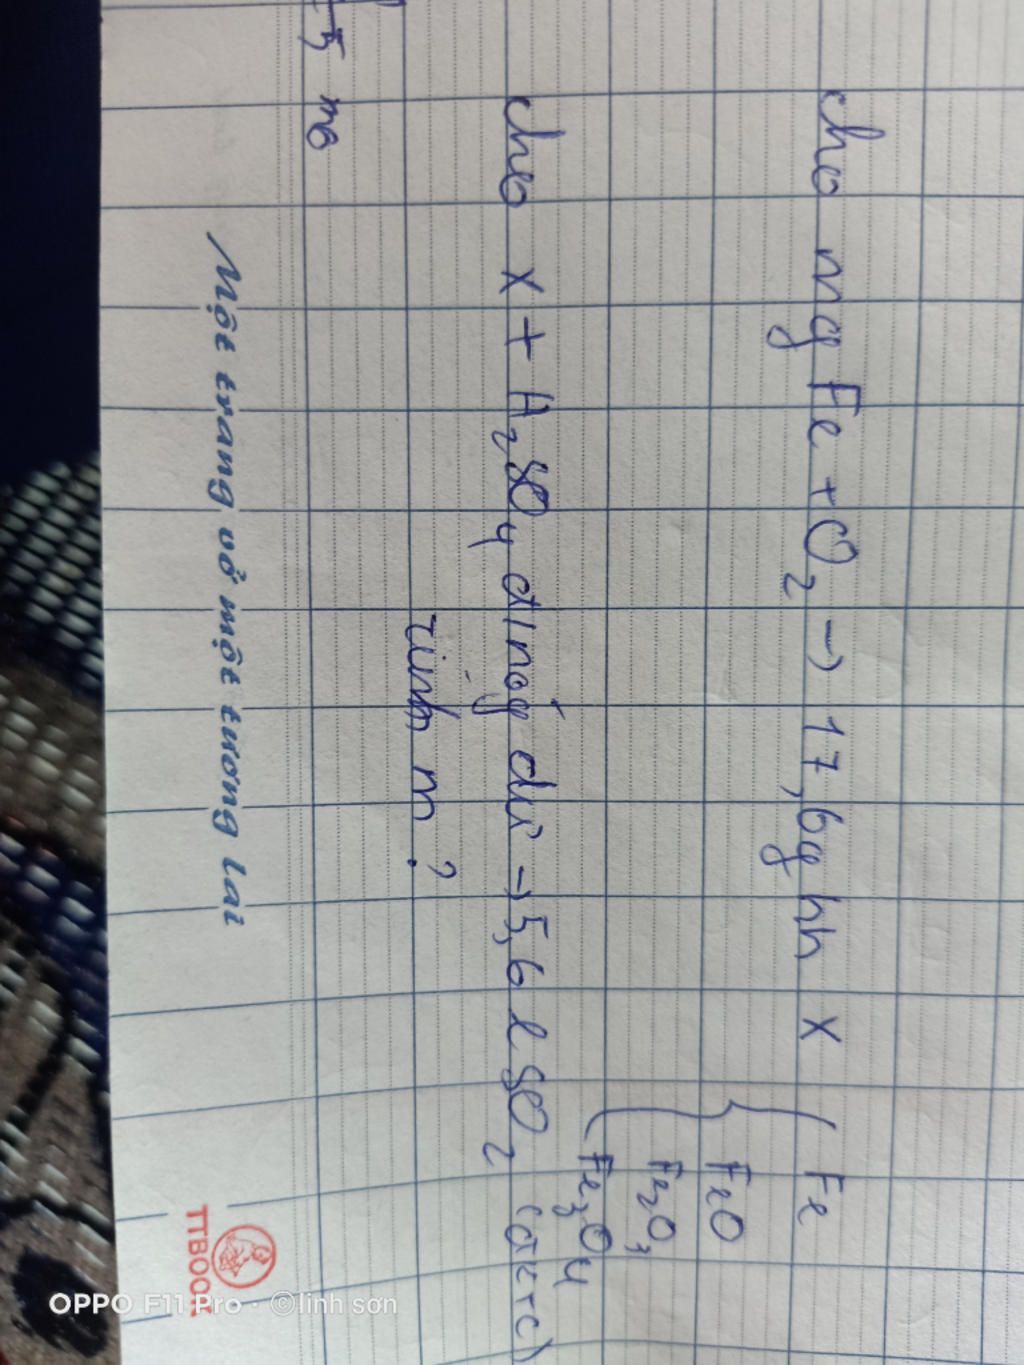 cho mg Fe + O2 → 17,6g hh X { Fe
FeO
Fe2O3
Fe3O4
cho X + H2SO4 đ/nóg dư → 5,6 l SO2 (đktc)
tính m?
Một trang vở một tương lai
TTBOOK
OPPO F11 Pro · ©linh sơn